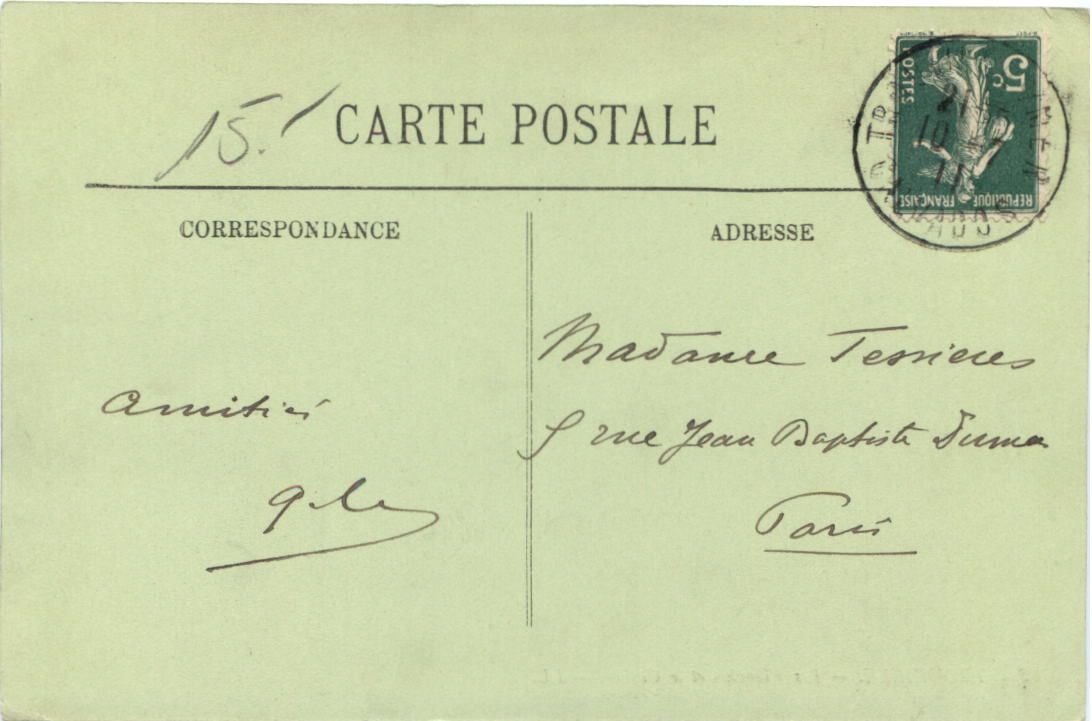 15.
CARTE POSTALE
5c
POSTES
REPUBLIQUE FRANÇAISE
21
10
11
CORRESPONDANCE
ADRESSE
Amitiés
Madame Tessieres
5 rue Jean Baptiste Dumas
Paris